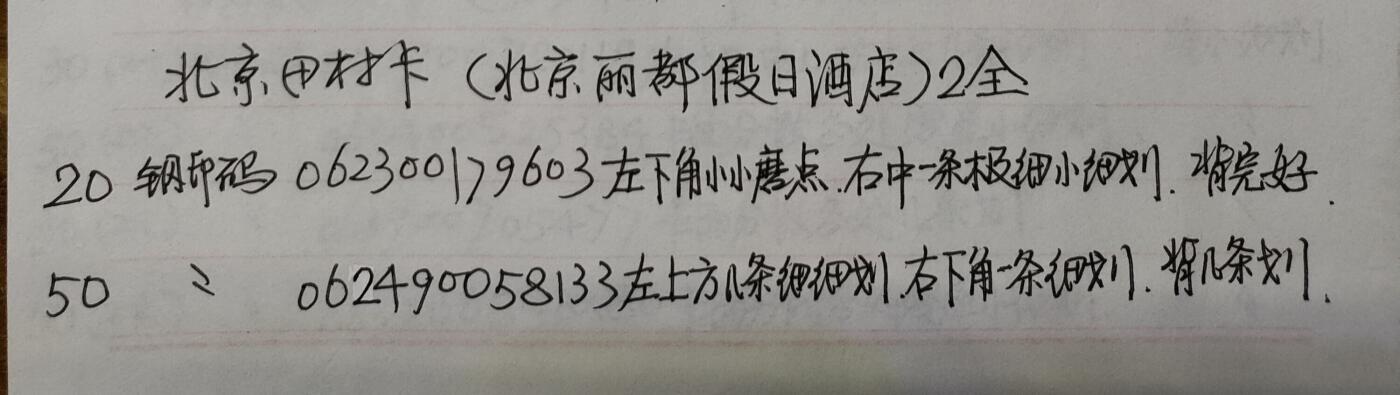 北京田村卡（北京丽都假日酒店）2全
20 钢印码 062300179603左下角小小磨点.右中一条极细小细划.背完好.
50 〃 062490058133左上方几条细细划.右下角一条细划.背几条划.